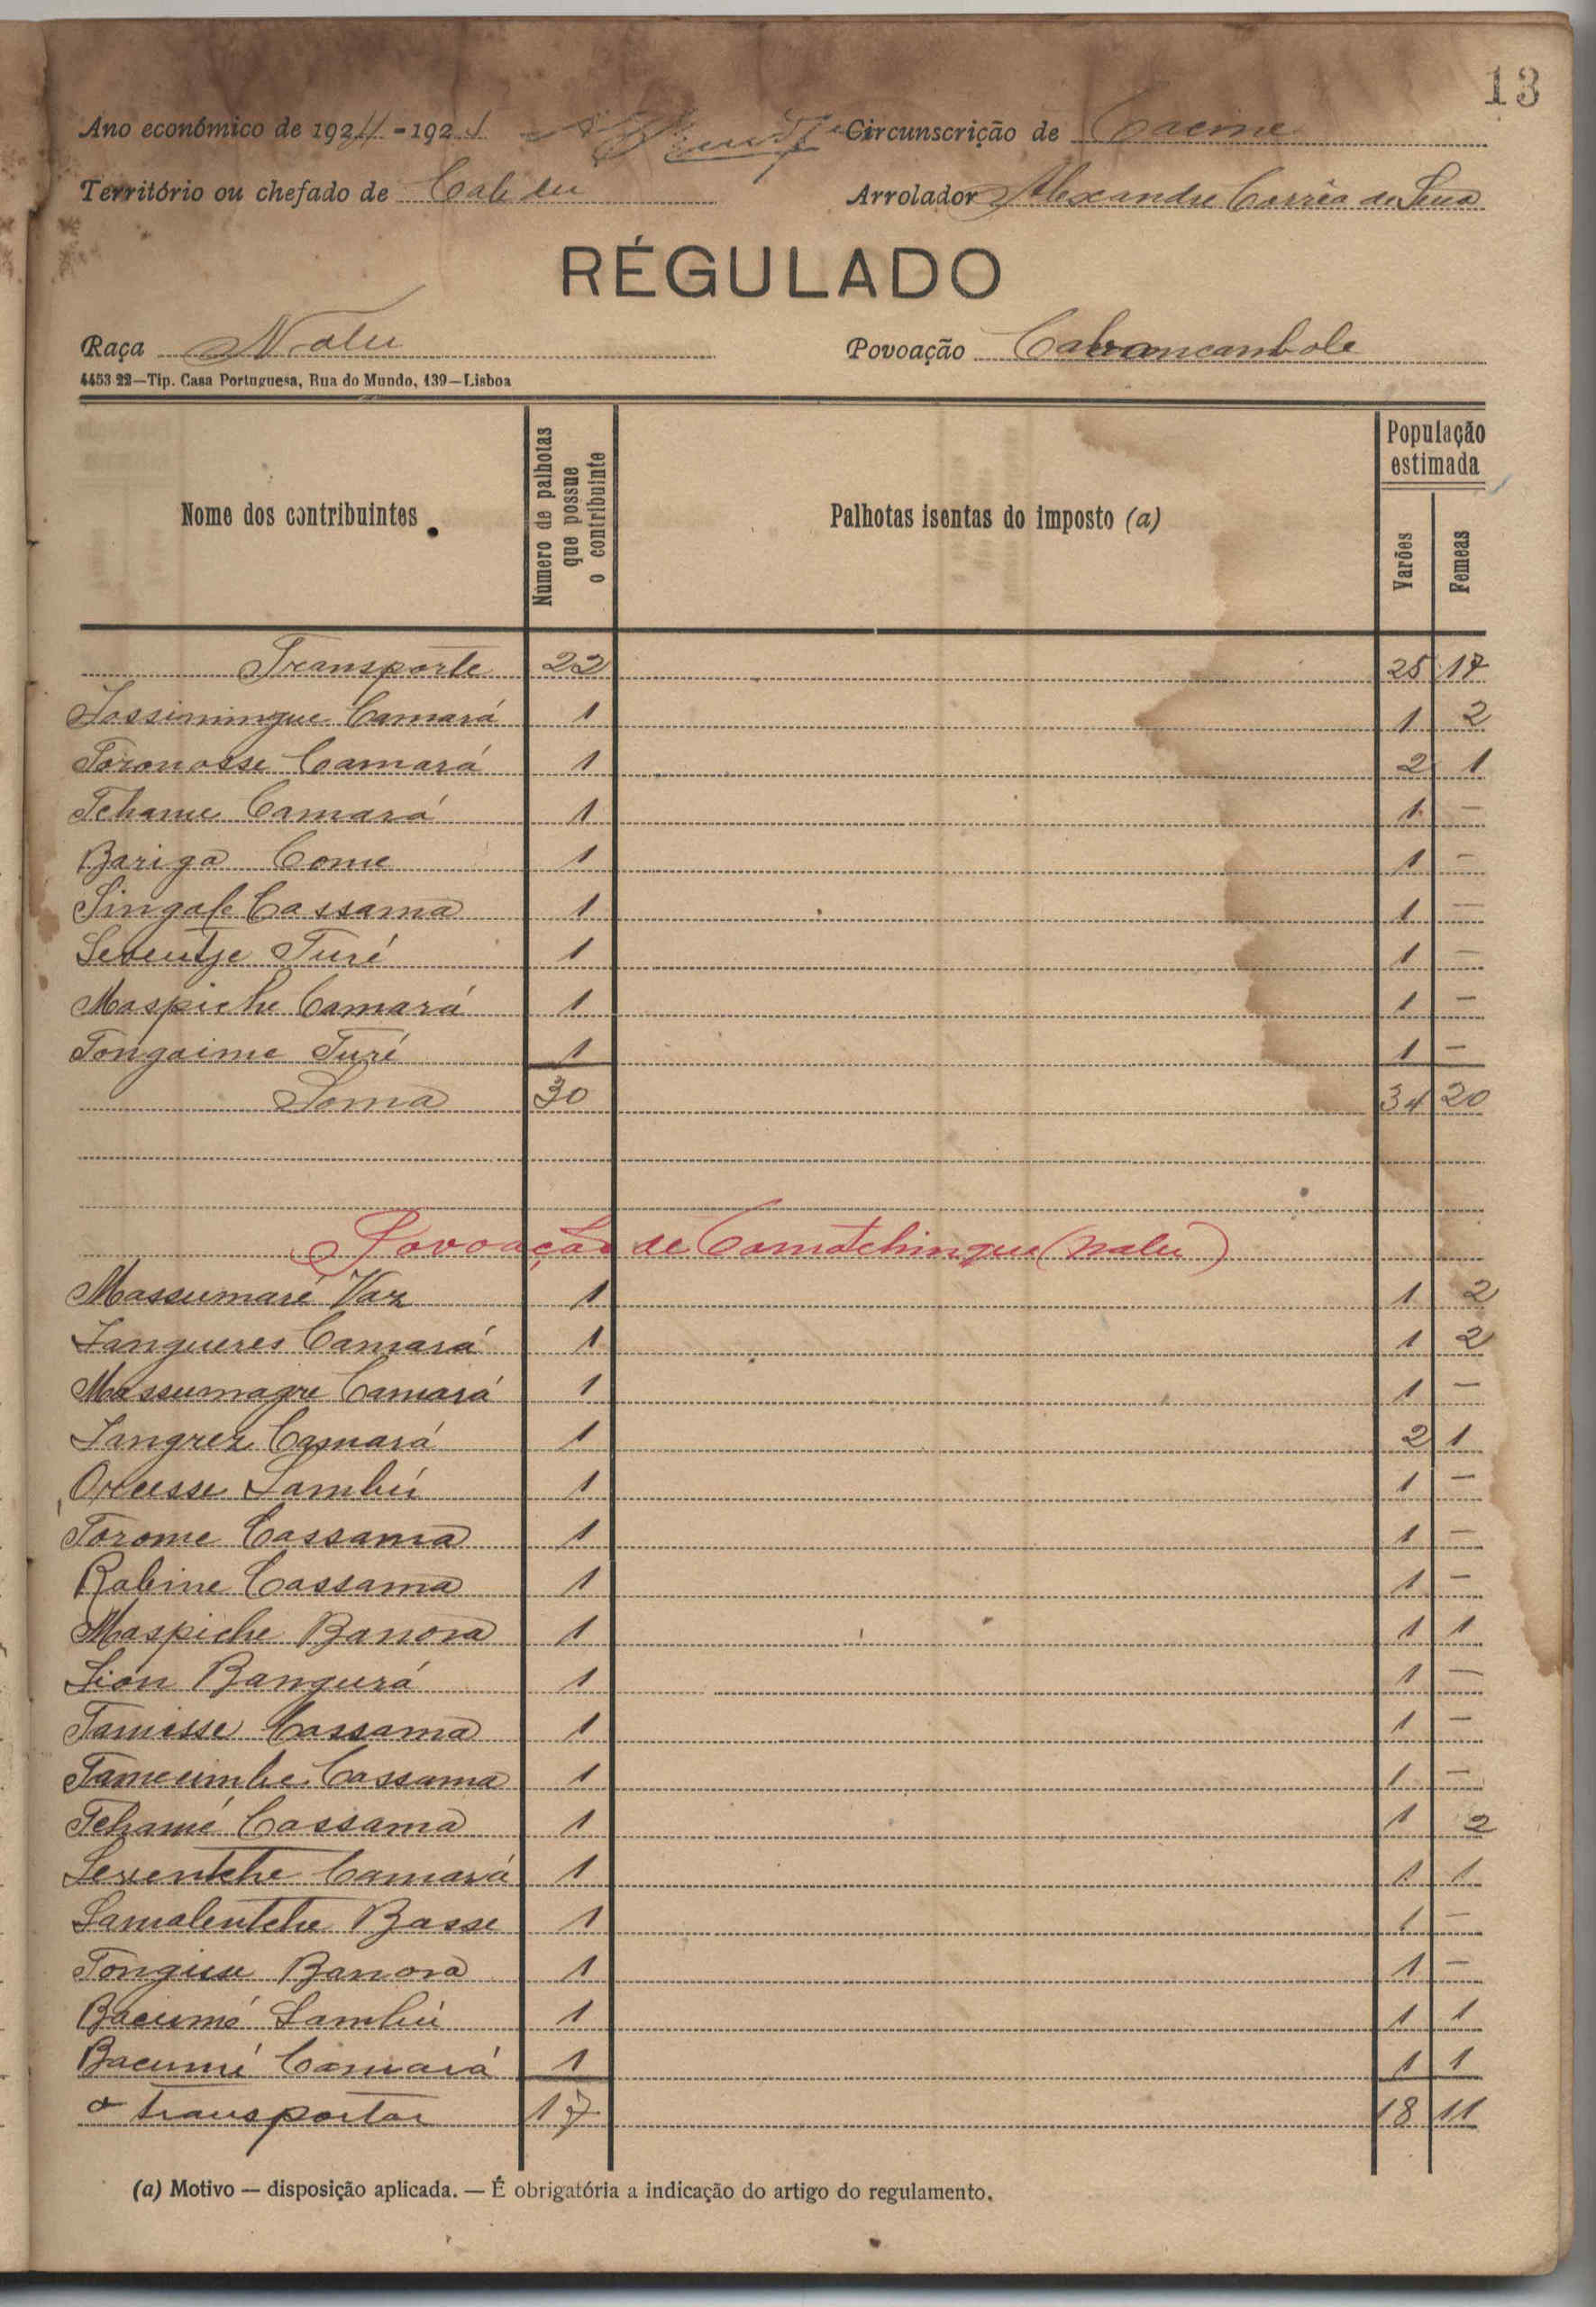 13
Ano económico de 192 - 192 Circunscrição de Cacine
Território ou chefado de Arrolador Alexandre Corrêa de Sena
RÉGULADO
Raça Nalu Povoação
4453 22—Tip. Casa Portuguesa, Rua do Mundo, 139—Lisboa
Nome dos contribuintes Número de palhotas que possue o contribuinte Palhotas isentas do imposto (a) População estimada Varões Femeas
Transporte 22 25 17
Camará 1 1 2
Toronosse Camará 1 2 1
Tchame Camará 1 1 —
Bariga Come 1 1 —
Singale Cassama 1 1 —
Turé 1 1 —
Maspiche Camará 1 1 —
Tongaime Turé 1 1 —
Soma 30 34 20
Povoação de Camatchingue (nalu)
Massumaré Vaz 1 1 2
Langueres Camará 1 1 2
Massumagre Camará 1 1 —
Langrez Camará 1 2 1
Lambú 1 1 —
Torome Cassama 1 1 —
Rabine Cassama 1 1 —
Maspiche Banora 1 1 1
Lion Bangurá 1 1 —
Tamisse Cassama 1 1 —
Tamecumbe Cassama 1 1 —
Tchamé Cassama 1 1 2
Camará 1 1 1
Lamalentche Basse 1 1 —
Banora 1 1 —
Bacumé Lambú 1 1 1
Bacumé Camará 1 1 1
a transportar 17 18 11
(a) Motivo — disposição aplicada. — É obrigatória a indicação do artigo do regulamento.